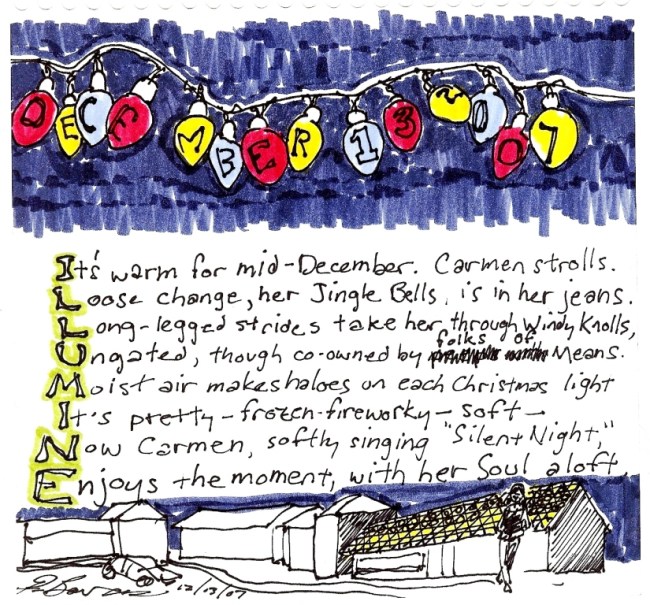 DECEMBER 13 2007
It's warm for mid-December. Carmen strolls.
Loose change, her Jingle Bells, is in her jeans.
Long-legged strides take her through Windy Knolls,
Ungated, though co-owned by folks of Means.
Moist air makes haloes on each Christmas light
It's pretty-frozen-fireworky-soft-
Now Carmen, softly singing "Silent Night,"
Enjoys the moment, with her Soul aloft.
12/13/07